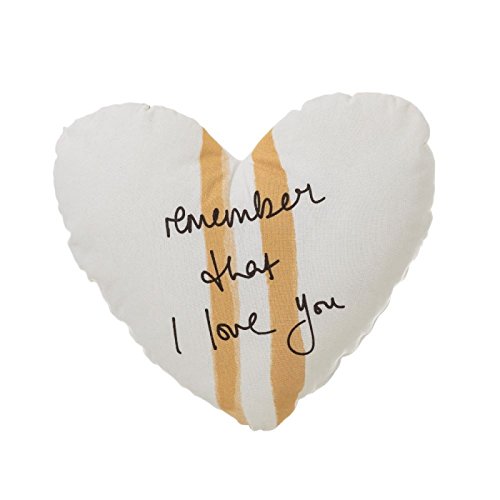 remember
that
I love you